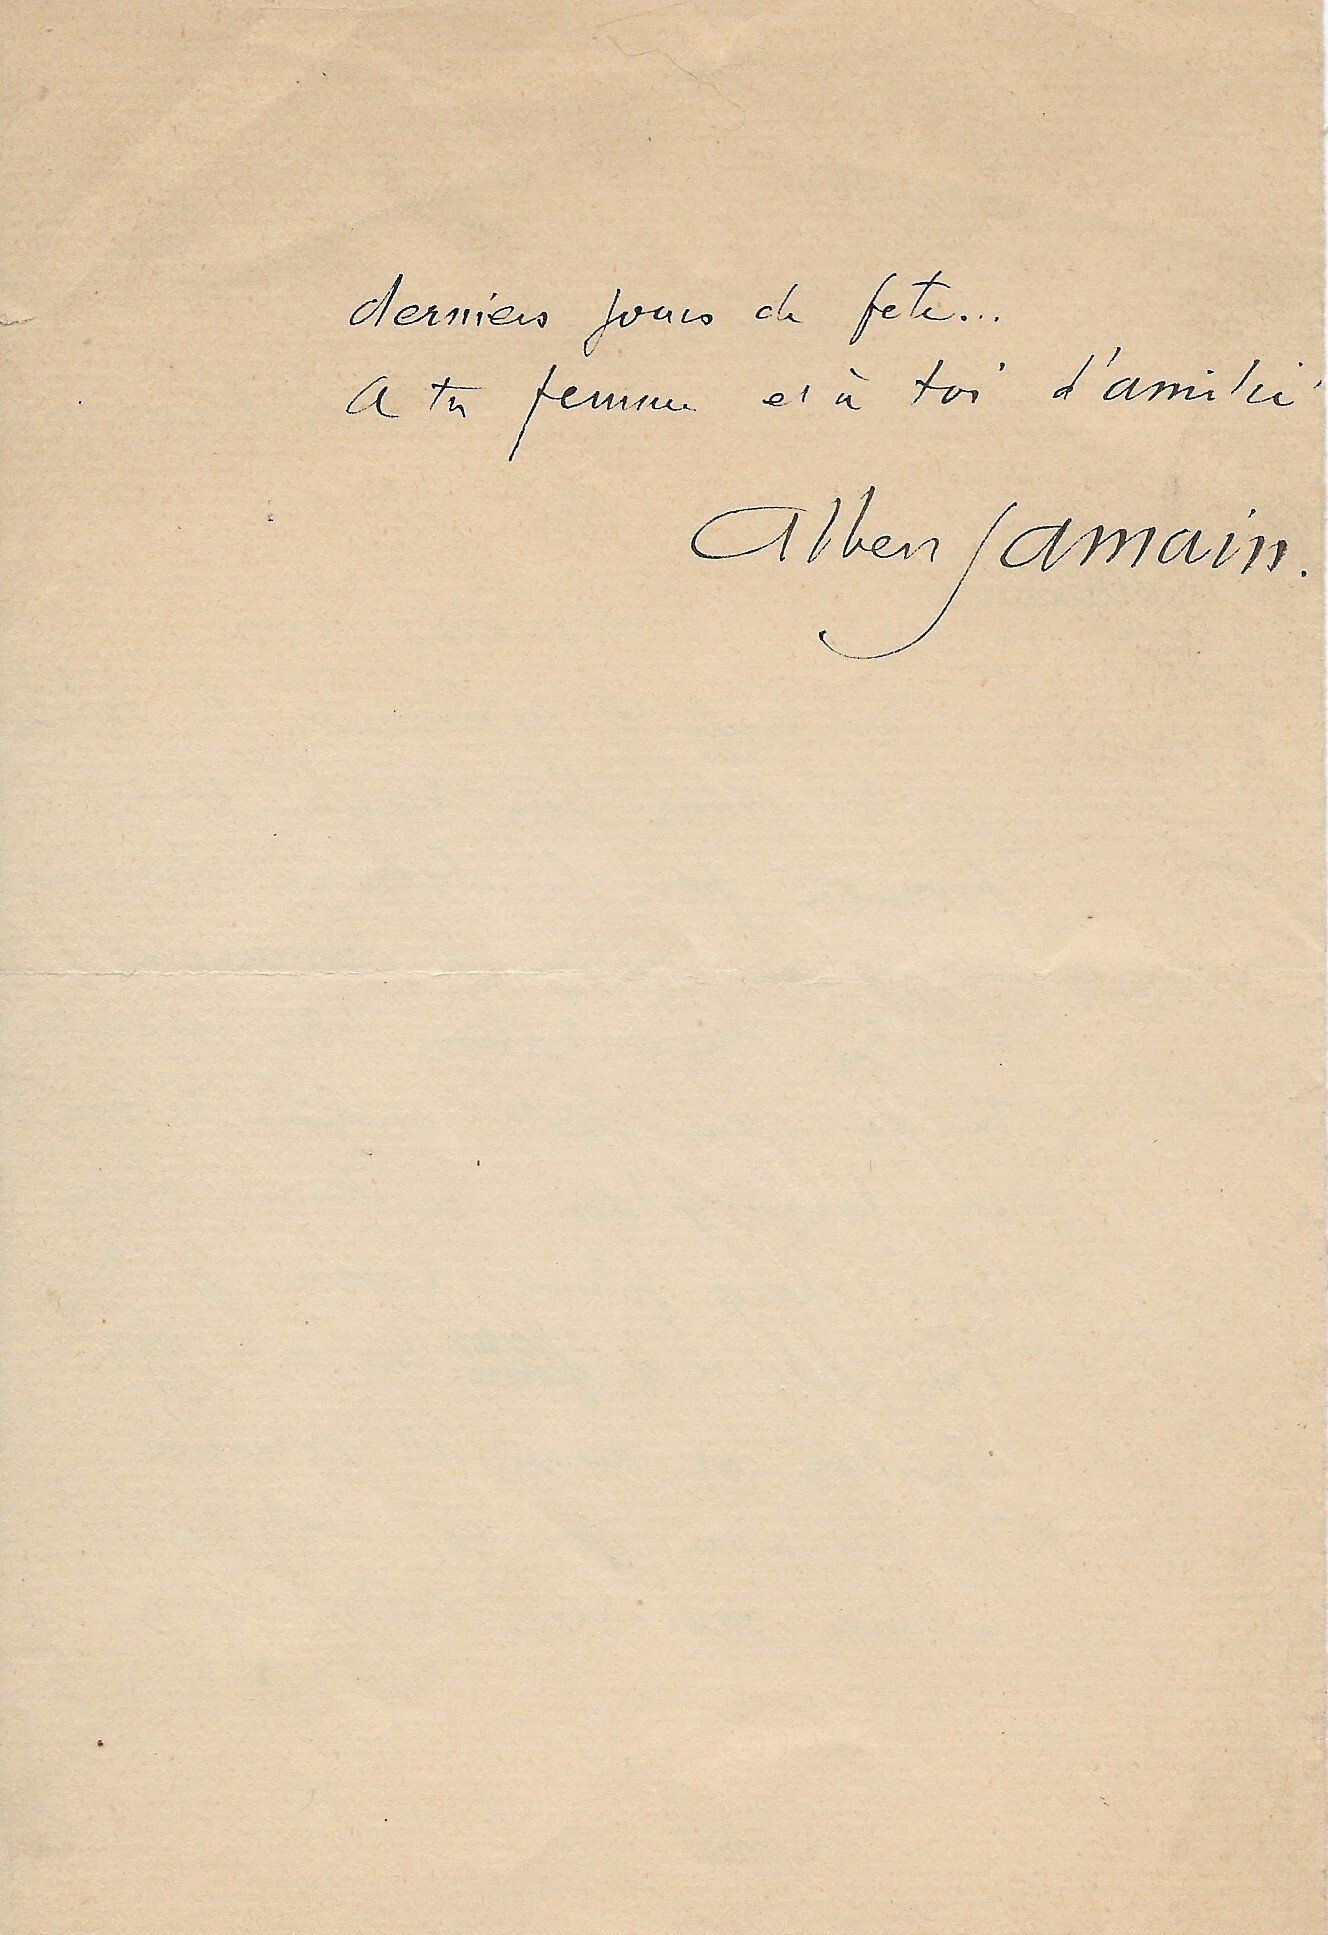 derniers jours de fete...
A ta femme et à toi d'amitié
Albert Samain.